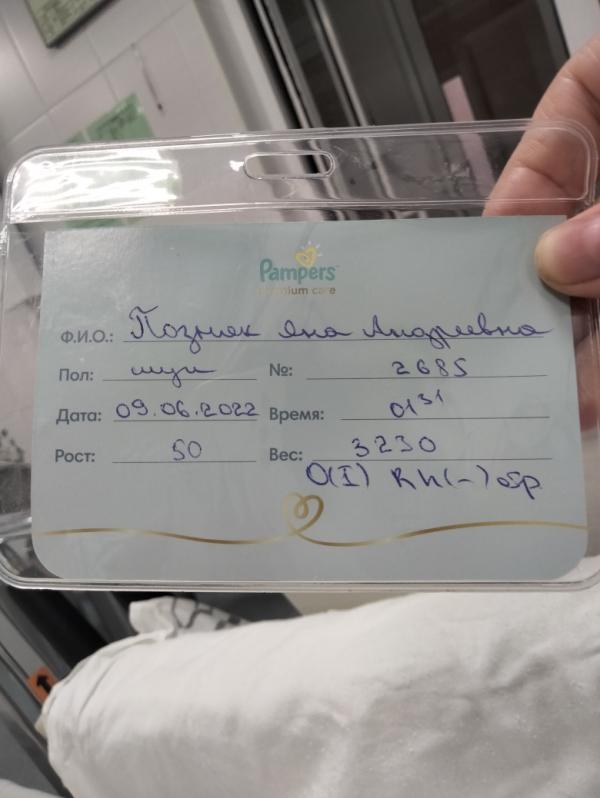 Pampers
premium care
Ф.И.О.: Позняк Яна Андреевна
Пол: муж №: 2685
Дата: 09.06.2022 Время: 01³¹
Рост: 50 Вес: 3230
O(I) Rh(-) отр